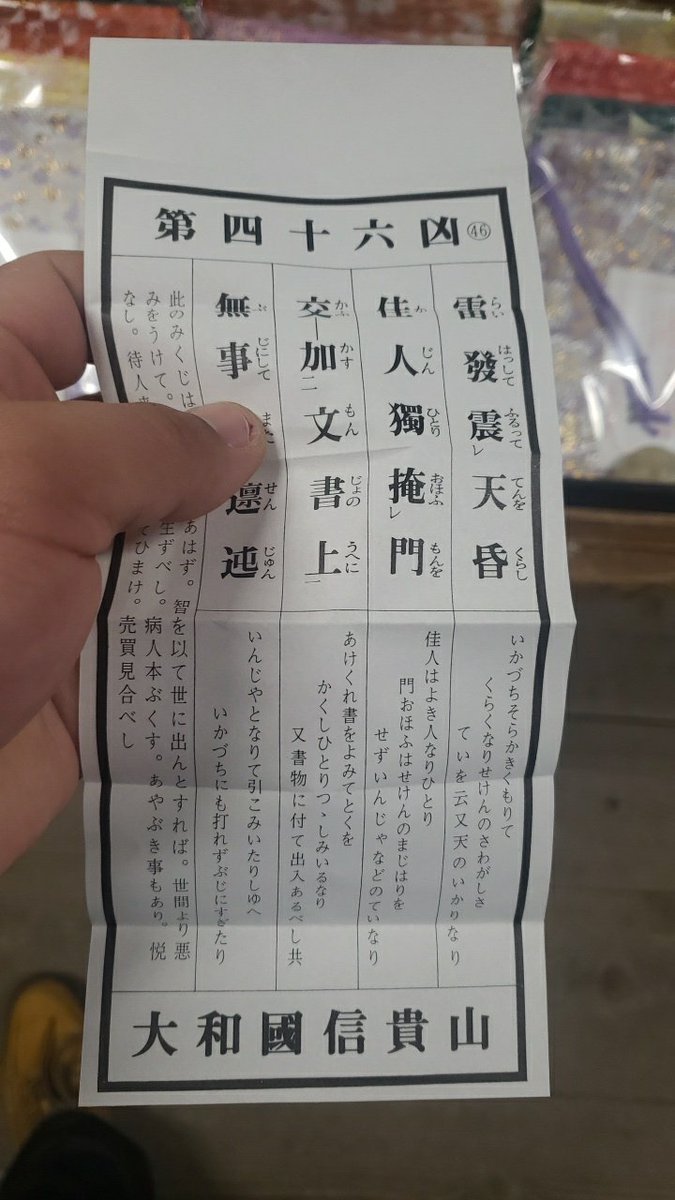 第四十六凶㊻
雷發震レ天昏
らいはっしてふるっててんをくらし
佳人獨掩レ門
かじんひとりおほふもんを
交加二文書上一
かふかすもんじょのうへに
無事邅迍
ぶじにしてせんじゅん
いかづちそらかきくもりて
くらくなりせけんのさわがしさ
ていを云又天のいかりなり
佳人はよき人なりひとり
門おほふはせけんのまじはりを
せずいんじゃなどのていなり
あけくれ書をよみてとくを
かくしひとりつゝしみいるなり
又書物に付て出入あるべし共
いんじやとなりて引こみいたりしゆへ
いかづちにも打れずぶじにすぎたり
此のみくじは あはず。智を以て世に出んとすれば。世間より悪
みをうけて。 生ずべし。病人本ぶくす。あやぶき事もあり。悦
なし。待人 てひまけ。売買見合べし
大和國信貴山